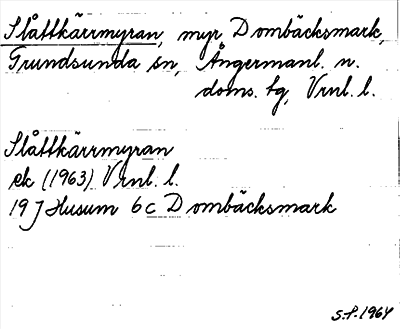 Slåttkärrmyran, myr Dombäcksmark,
Grundsunda sn, Ångermanl. n.
doms. tg, Vrnl. l.
Slåttkärrmyran
ek (1963) Vrnl. l.
19 J Husum 6c Dombäcksmark
S.P. 1964